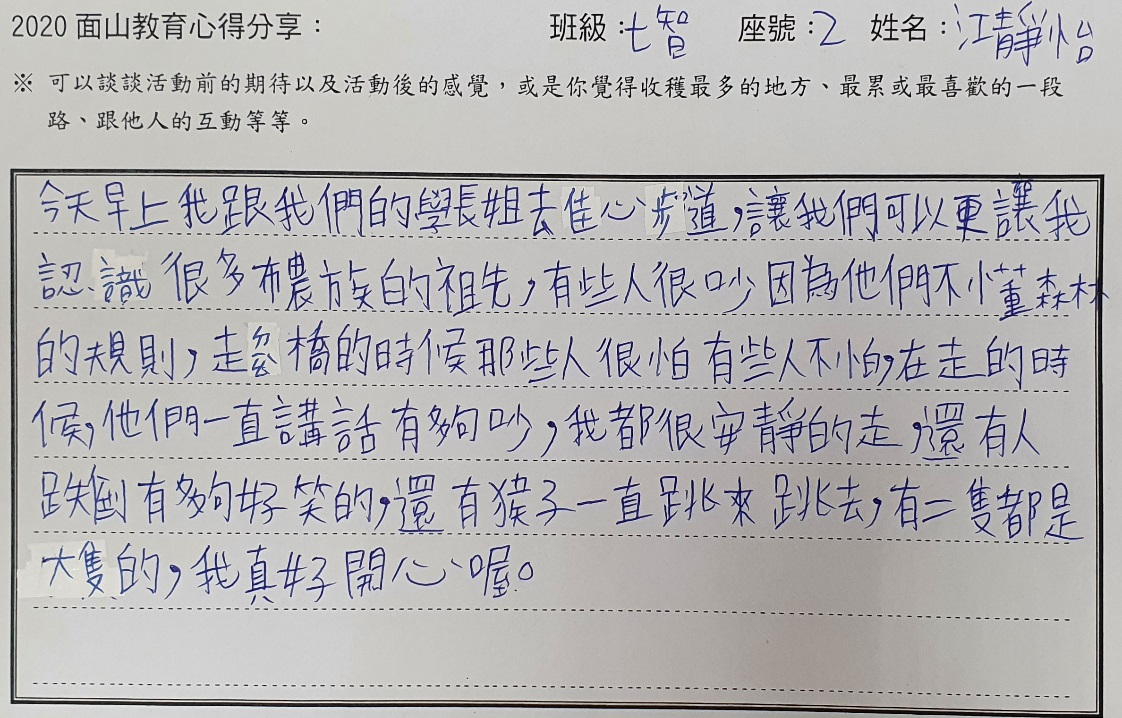 2020 面山教育心得分享： 班級：七智 座號：2 姓名：江靜怡
※ 可以談談活動前的期待以及活動後的感覺，或是你覺得收穫最多的地方、最累或最喜歡的一段
路、跟他人的互動等等。
今天早上我跟我們的學長姐去佳心步道，讓我們可以更讓我
認識很多布農族的祖先，有些人很吵因為他們不懂森林
的規則，走橋的時候那些人很怕有些人不怕，在走的時
候，他們一直講話有夠吵，我都很安靜的走，還有人
跌倒有夠好笑的，還有猴子一直跳來跳去，有二隻都是
大隻的，我真好開心喔。